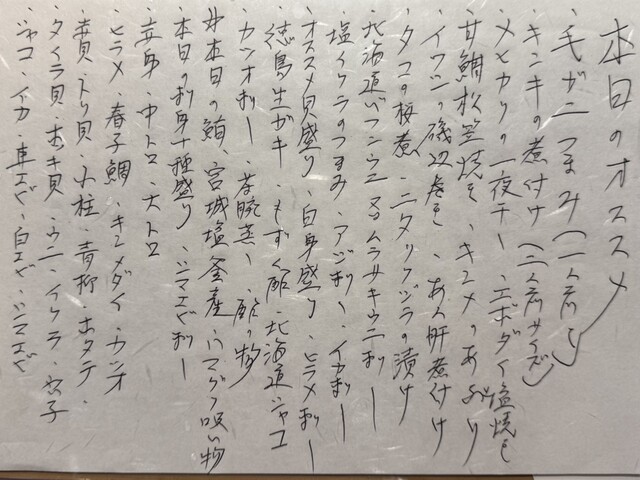 本日のオススメ
・毛ガニつまみ(一人前)
・キンキの煮付け(二人前サイズ)
・メヒカリの一夜干し・エボダイ塩焼き
・甘鯛松笠焼き・キンメのあぶり
・イワシの磯辺巻き・あん肝煮付け
・タコの桜煮・ニタリクジラの漬け
・北海道バフンウニ・ムラサキウニ刺し
・塩イクラのつまみ・アジ刺し・イカ刺し
・オススメ貝盛り・白身盛り・ヒラメ刺し
・徳島生ガキ・もずく酢・北海道シャコ
・カツオ刺し・茶碗蒸し・酢の物
#本日の鮪、宮城塩釜産・ハマグリ吸い物
・本日のお刺身十種盛り・シマエビ刺し
・赤身・中トロ・大トロ
・ヒラメ・春子鯛・キンメダイ・カツオ
・赤貝・トリ貝・小柱・青柳・ホタテ
・タイラ貝・ホッキ貝・ウニ・イクラ・穴子
・シャコ・イカ・車エビ・白エビ・シマエビ